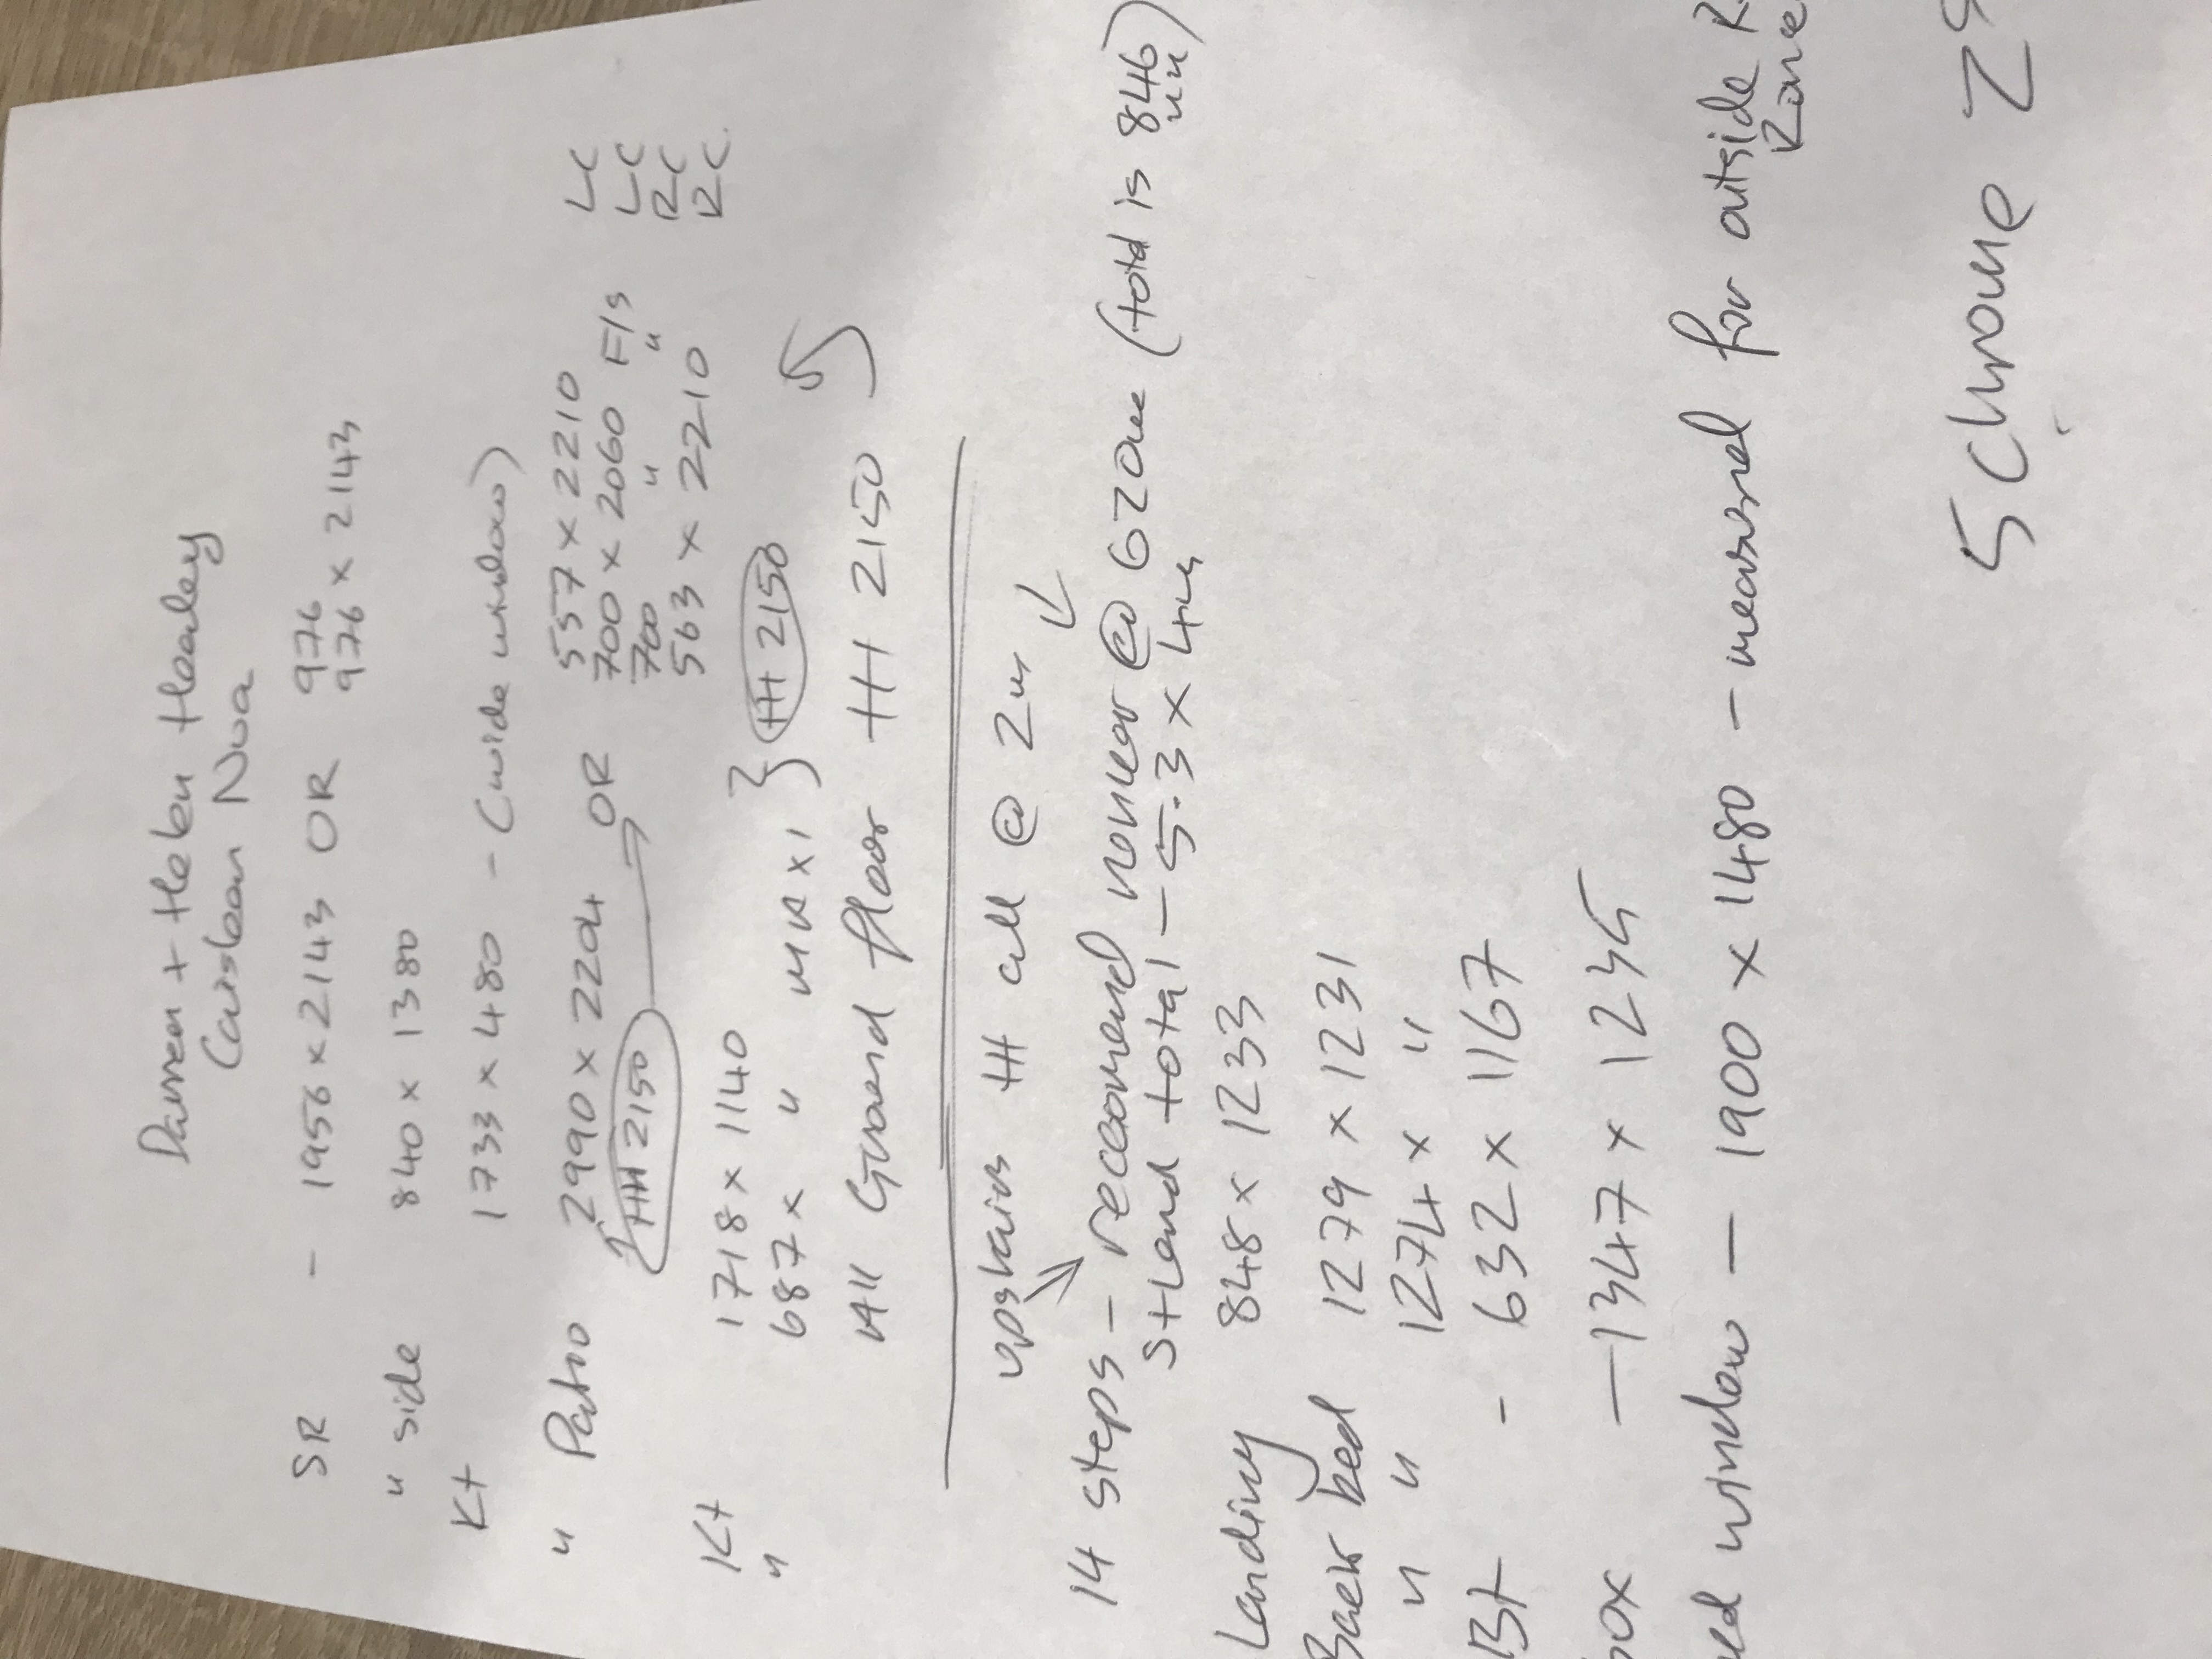 Damien + Helen Healey
Caislean Nua
SR - 1956 x 2143 OR 976
976 x 2143
" side 840 x 1380
Kt 1733 x 480 - (wide window)
" Patio 2990 x 2204 OR 557 x 2210 LC
HH 2150 700 x 2060 F/s LC
700 " " RC
563 x 2210 RC
Kt 1718 x 1140
" 687 x " x 1 } HH 2150
All Ground floor HH 2150
upstairs HH all @ 2m
14 steps - reccomend @ 620
S + Land total - 5.3 x 4m (total is 846)
Landing 848 x 1233
Back bed 1279 x 1231
" " 1274 x "
Bt - 632 x 1167
box - 1347 x 1245
window - 1900 x 1480 - measured for outside
5 Chrome